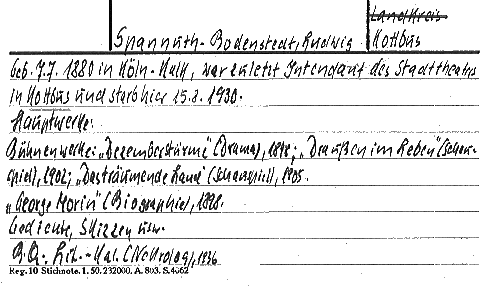 ~~Landkreis~~
Spannuth-Bodenstedt, Ludwig Kottbus
geb. 7.7. 1880 in Köln-Kalk, war zuletzt Intendant des Stadttheaters
in Kottbus und starb hier 15.8. 1930.
Hauptwerke:
Bühnenwerke: „Dezemberstürme" (Drama), ; „Draußen im Leben" (Schau-
spiel), 1902; „Das träumende Land" (Schauspiel), 1905.
„George Morin" (Biographie), 1898.
Gedichte, Skizzen usw.
Lit.-Kal. (Nekrolog), 1936
Reg. 10 Stichnote. 1. 50. 232000. A. 803. S. 4062